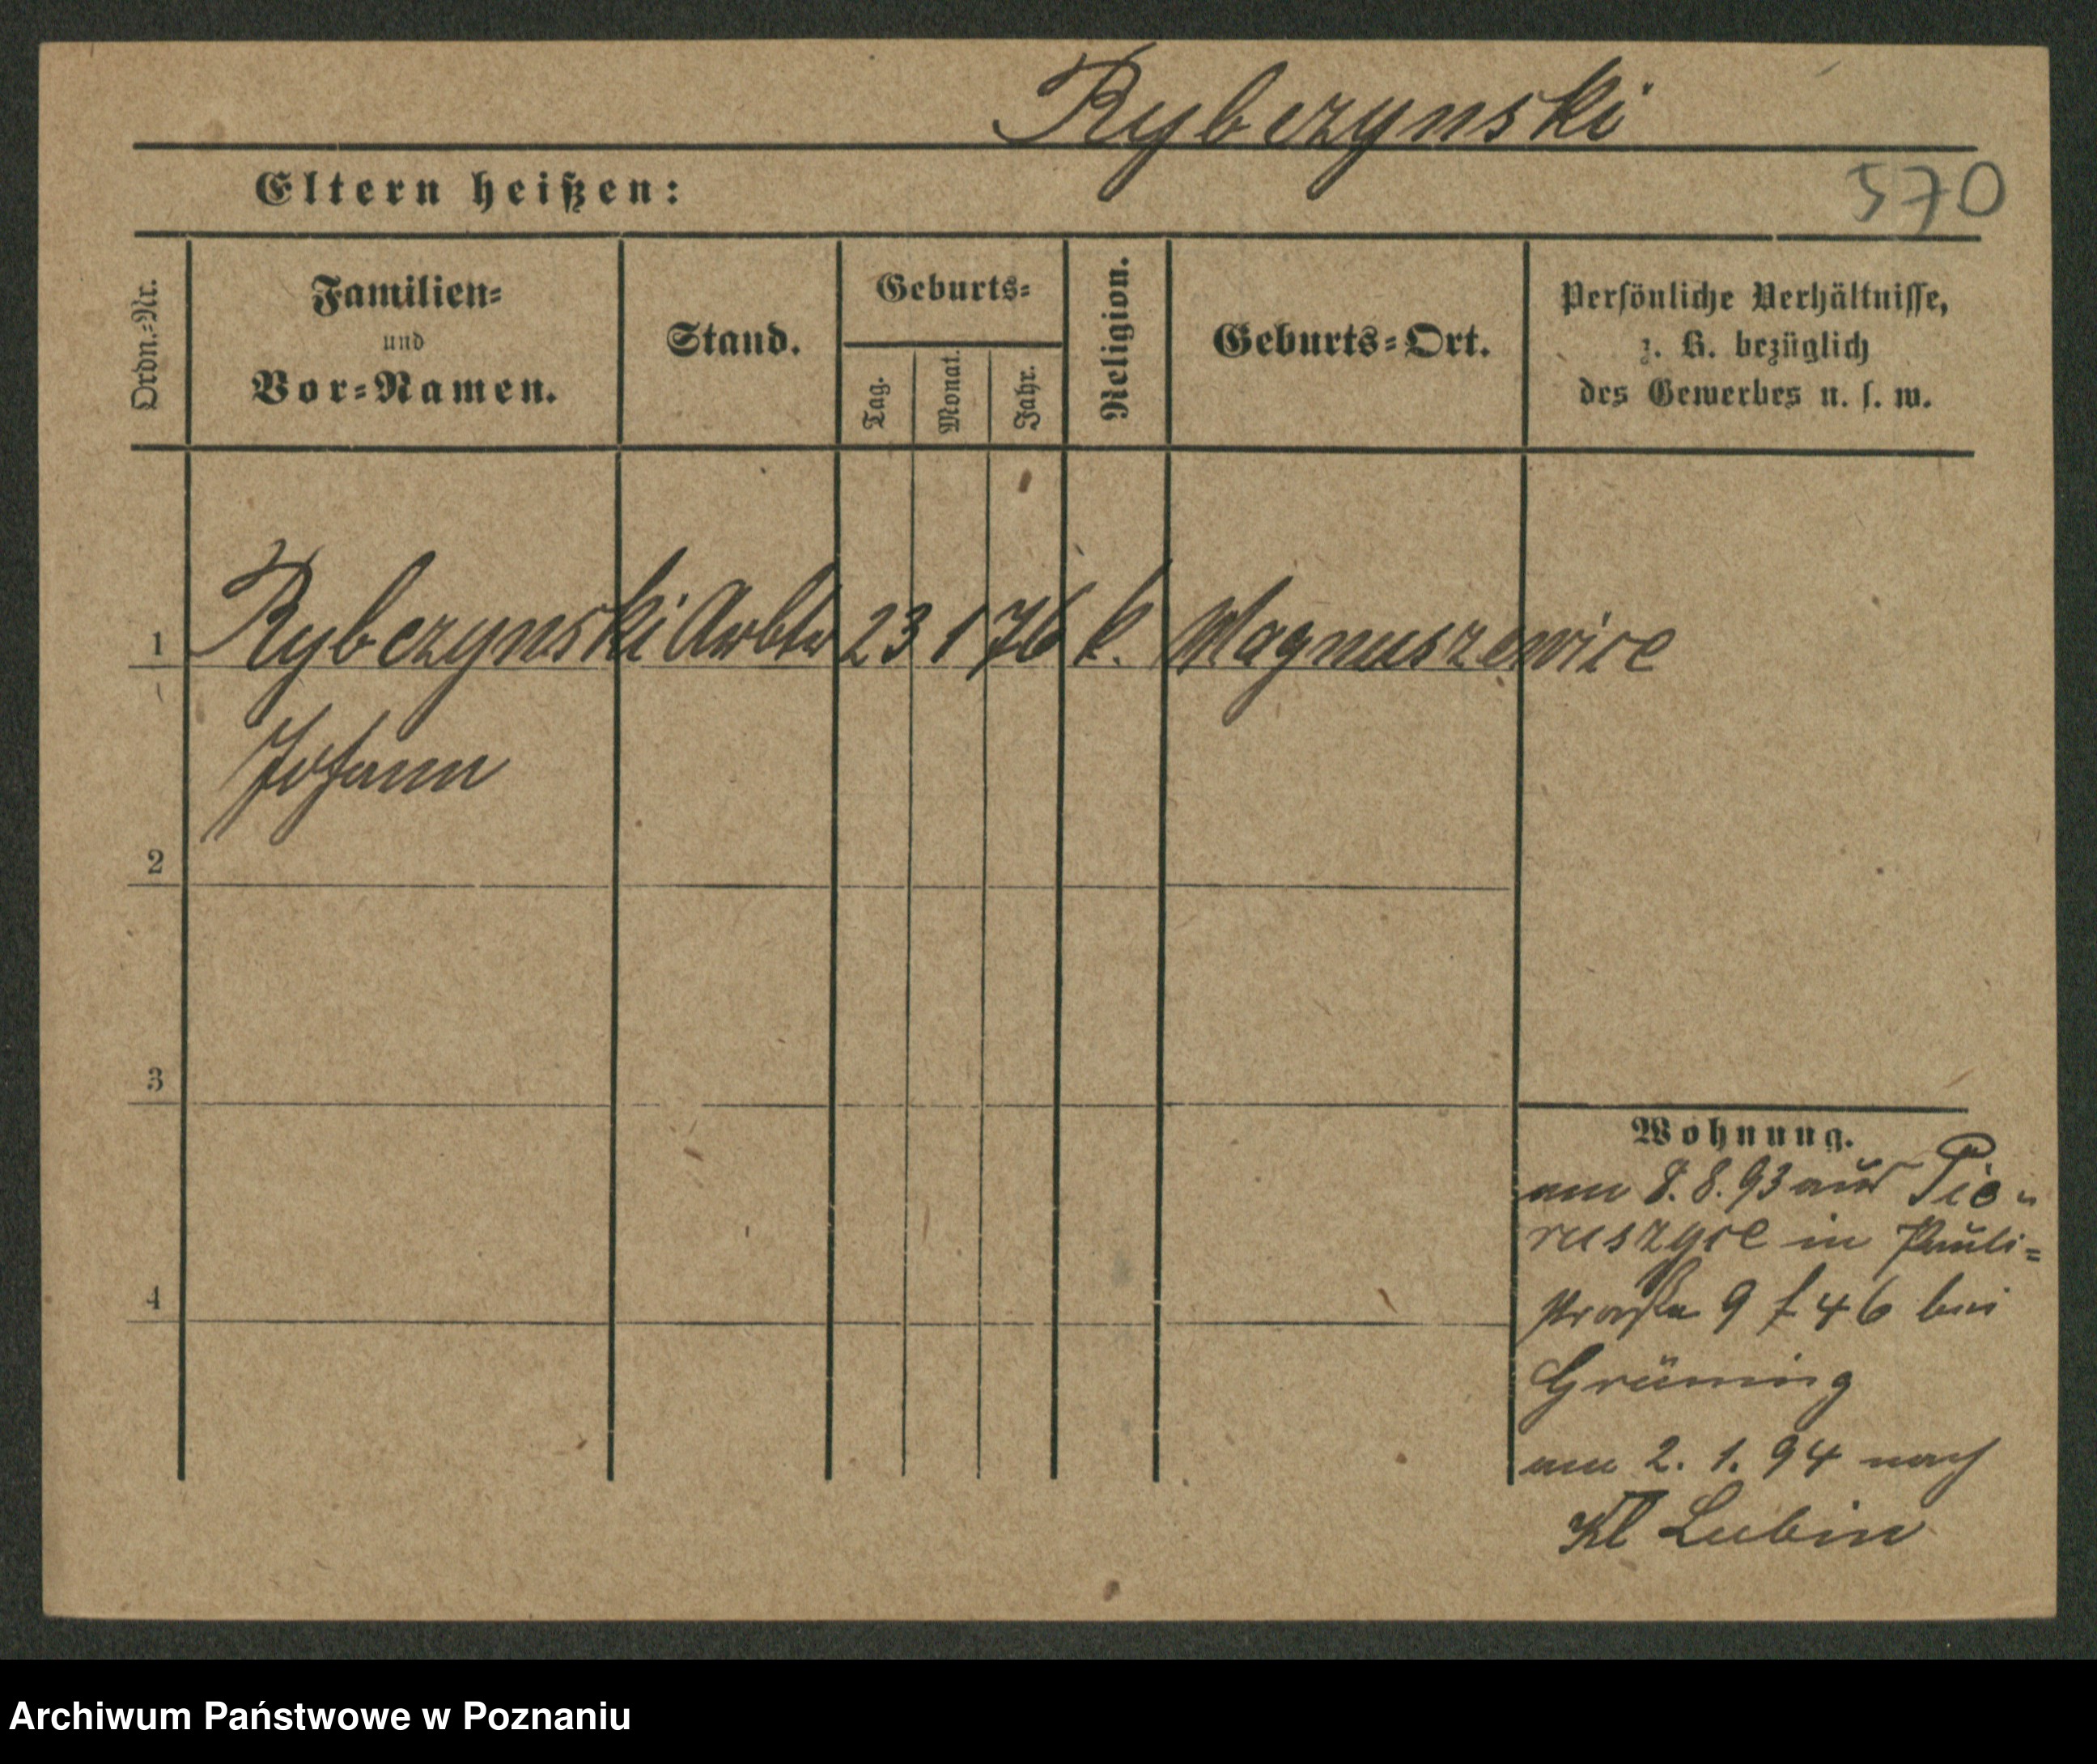 Rybczynski
Eltern heißen:
570
Ordn.-Nr.
Familien-
und
Vor-Namen.
Stand.
Geburts-
Tag.
Monat.
Jahr.
Religion.
Geburts-Ort.
Persönliche Verhältnisse,
z. B. bezüglich
des Gewerbes u. s. w.
1 Rybczynski Arbtr 23 1 76 k. Magnuszewice
Johann
2
3
4
Wohnung.
am 8.8.93 aus Pie-
ruszyce in Pauli-
straße 9 f 46 bei
Grüning
am 2. 1. 94 nach
Kl Lubin
Archiwum Państwowe w Poznaniu